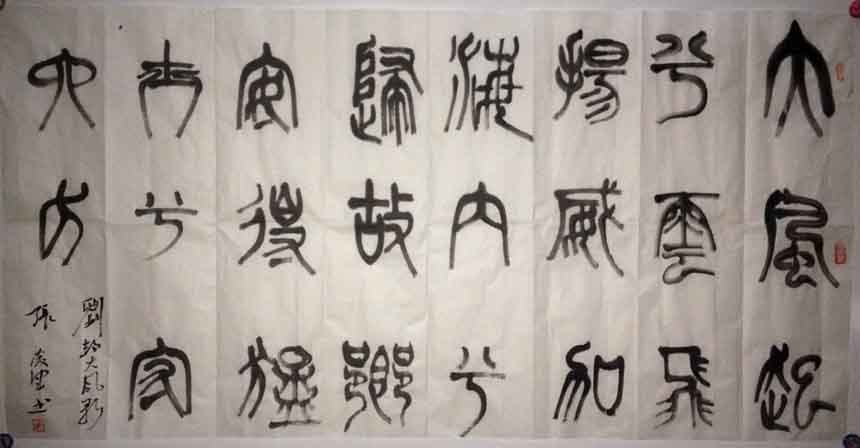 大風起
兮雲飛
揚威加
海內兮
歸故鄉
安得猛
士兮守
四方
劉邦大風歌
張